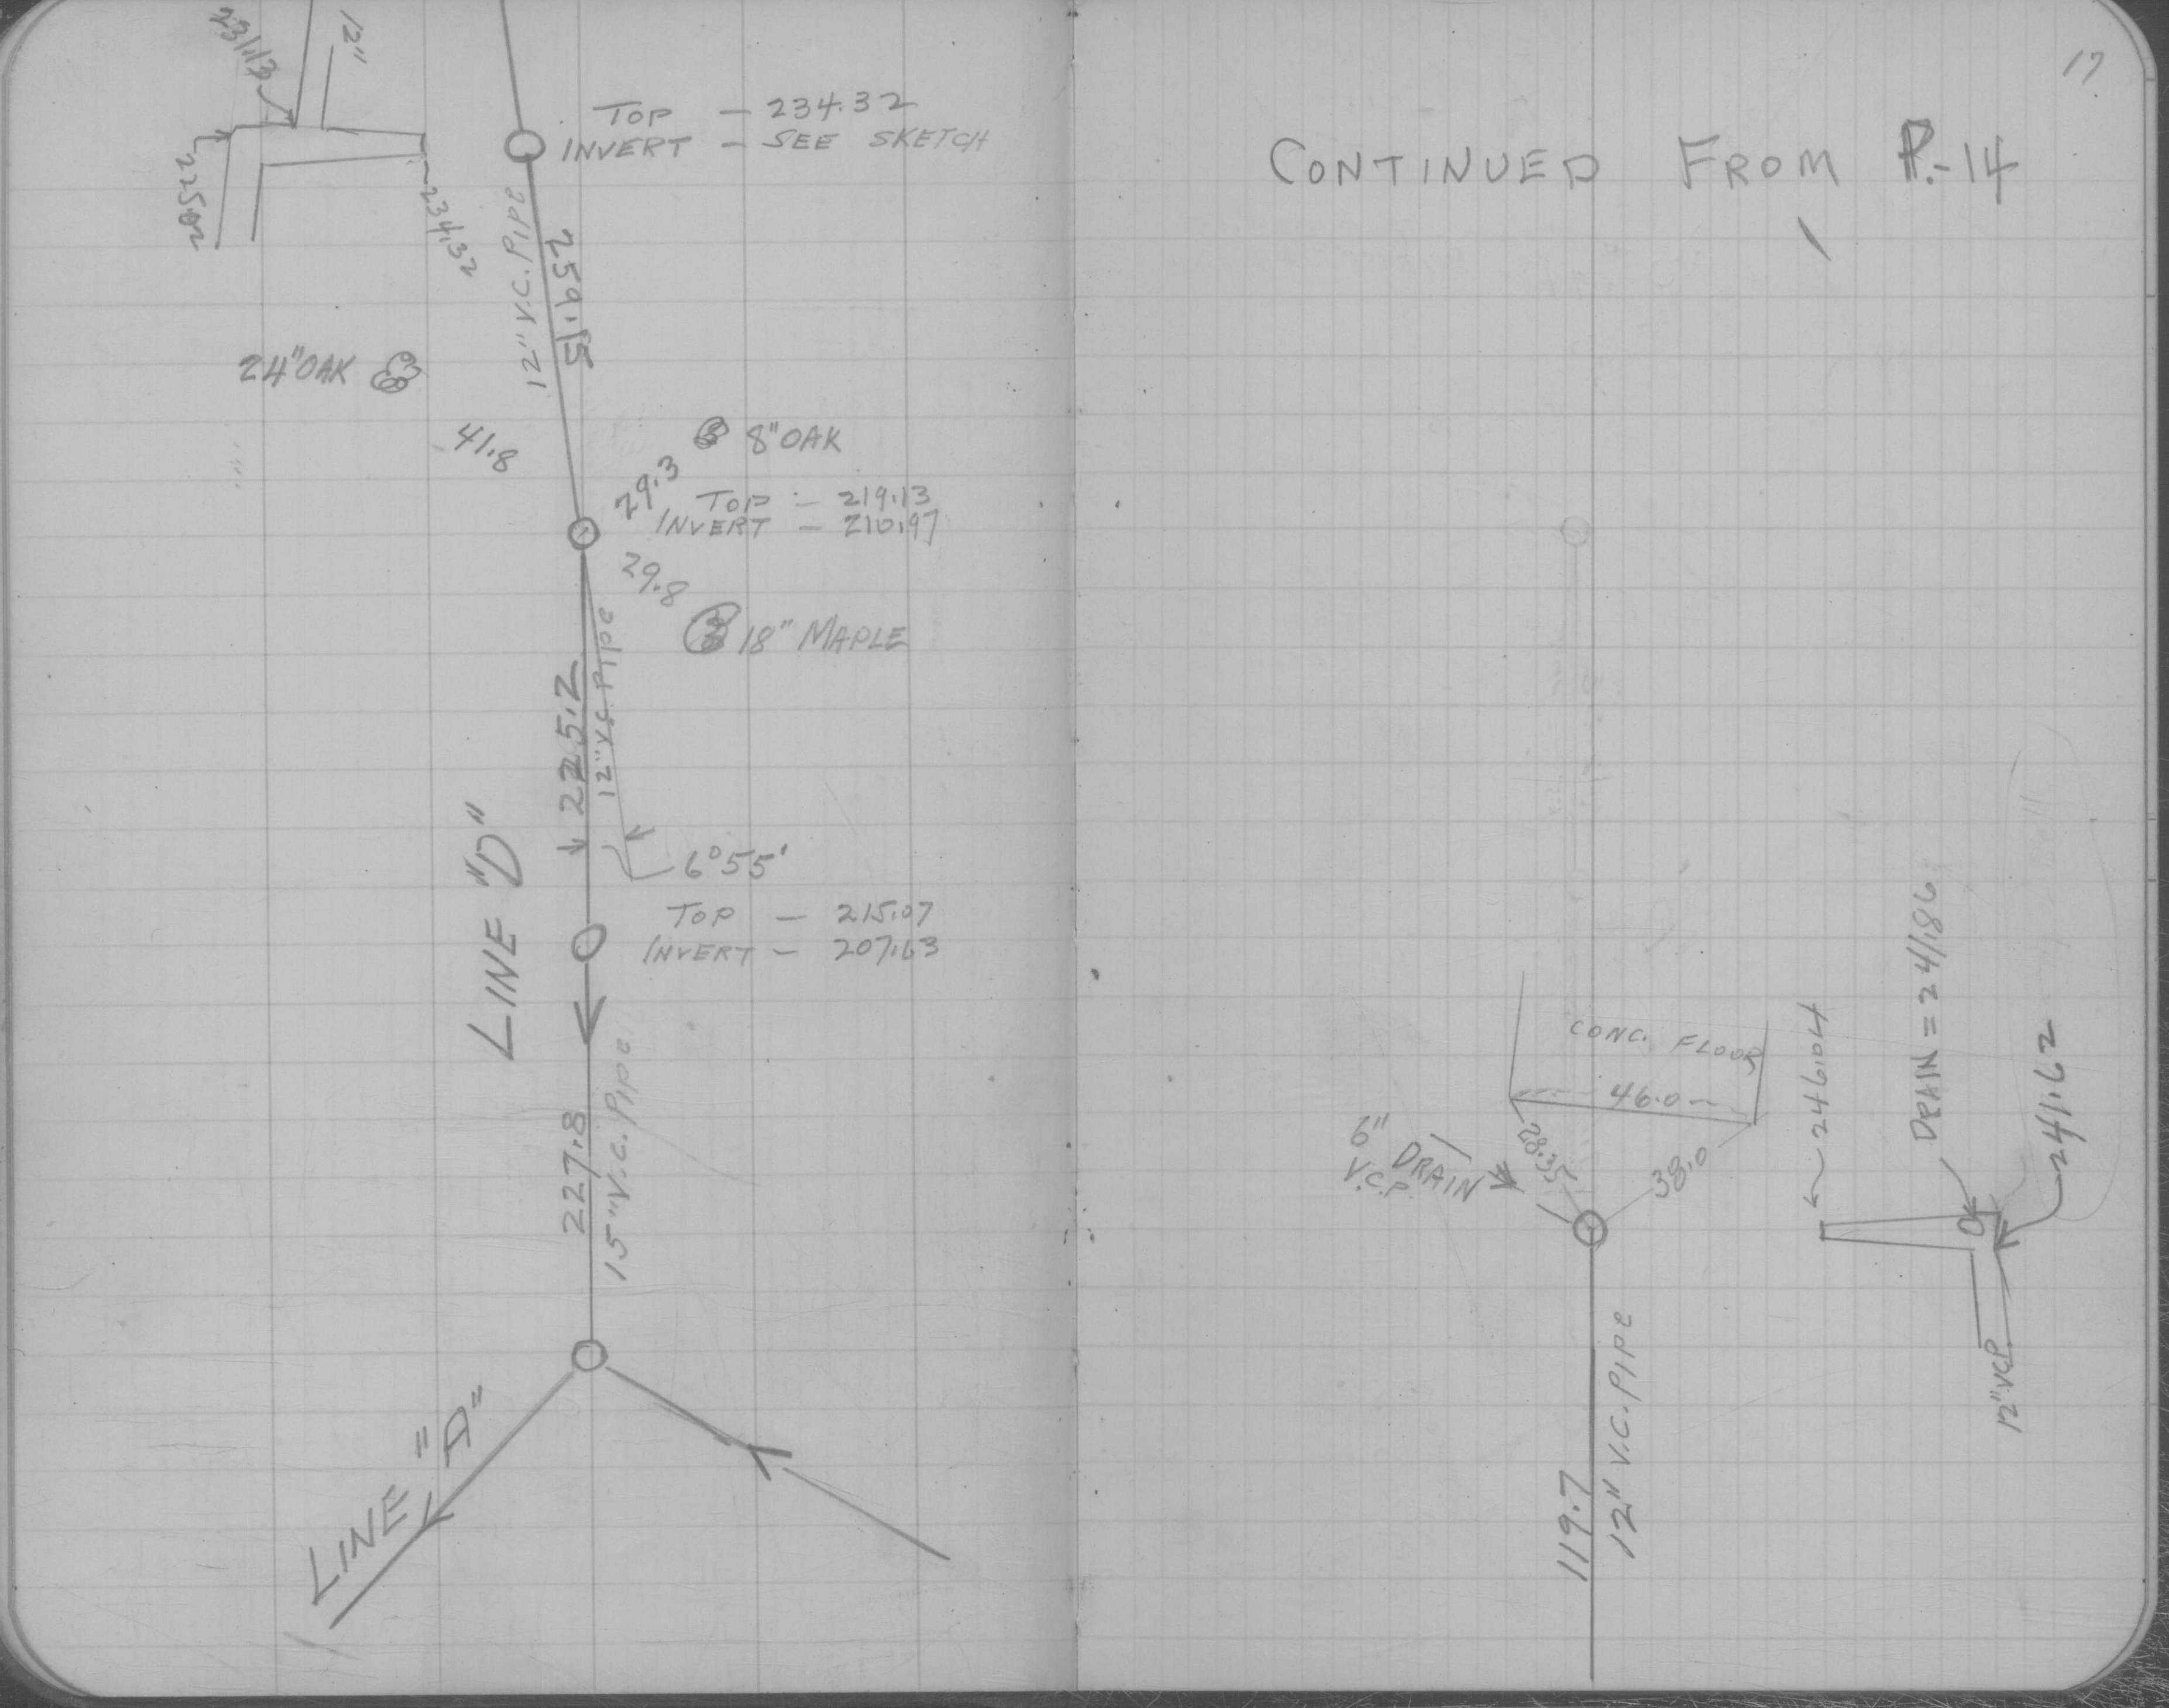 231.13
12"
TOP - 234.32
INVERT - SEE SKETCH
225.82
234.32
12" V.C. PIPE
256.15
24" OAK
41.8
8" OAK
29.3
TOP - 219.13
INVERT - 210.97
29.8
18" MAPLE
225.2
12" V.C. PIPE
LINE "D"
6°55'
TOP - 215.07
INVERT - 207.63
227.8
15" V.C. PIPE
LINE "D"
17
CONTINUED FROM P.-14
CONC. FLOOR
46.0
6" DRAIN
V.C.P.
28.35
38.0
246.04
DRAIN = 241.86
241.62
12" V.C.P.
119.7
12" V.C. PIPE